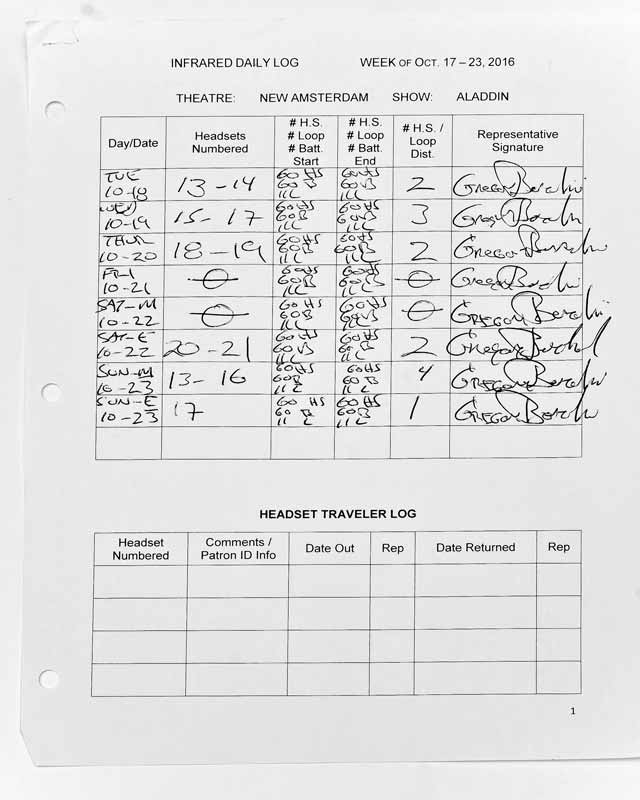 INFRARED DAILY LOG WEEK OF OCT. 17 – 23, 2016
THEATRE: NEW AMSTERDAM SHOW: ALADDIN
Day/Date Headsets Numbered # H.S. # Loop # Batt. Start # H.S. # Loop # Batt. End # H.S. / Loop Dist. Representative Signature
TUE 10-18 13-14 60 HS 60 B 11 L 60 HS 60 B 11 L 2 Gregory
WED 10-19 15-17 60 HS 60 B 11 L 60 HS 60 B 11 L 3 Gregory
THUR 10-20 18-19 60 HS 60 B 11 L 60 HS 60 B 11 L 2 Gregory
FRI 10-21 0 60 HS 60 B 11 L 60 HS 60 B 11 L 0 Gregory
SAT-M 10-22 0 60 HS 60 B 11 L 60 HS 60 B 11 L 0 Gregory
SAT-E 10-22 20-21 60 HS 60 B 11 L 60 HS 60 B 11 L 2 Gregory
SUN-M 10-23 13-16 60 HS 60 B 11 L 60 HS 60 B 11 L 4 Gregory
SUN-E 10-23 17 60 HS 60 B 11 L 60 HS 60 B 11 L 1 Gregory
HEADSET TRAVELER LOG
Headset Numbered Comments / Patron ID Info Date Out Rep Date Returned Rep
1